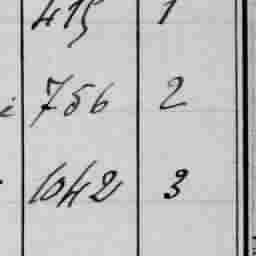 415 1
756 2
1042 3